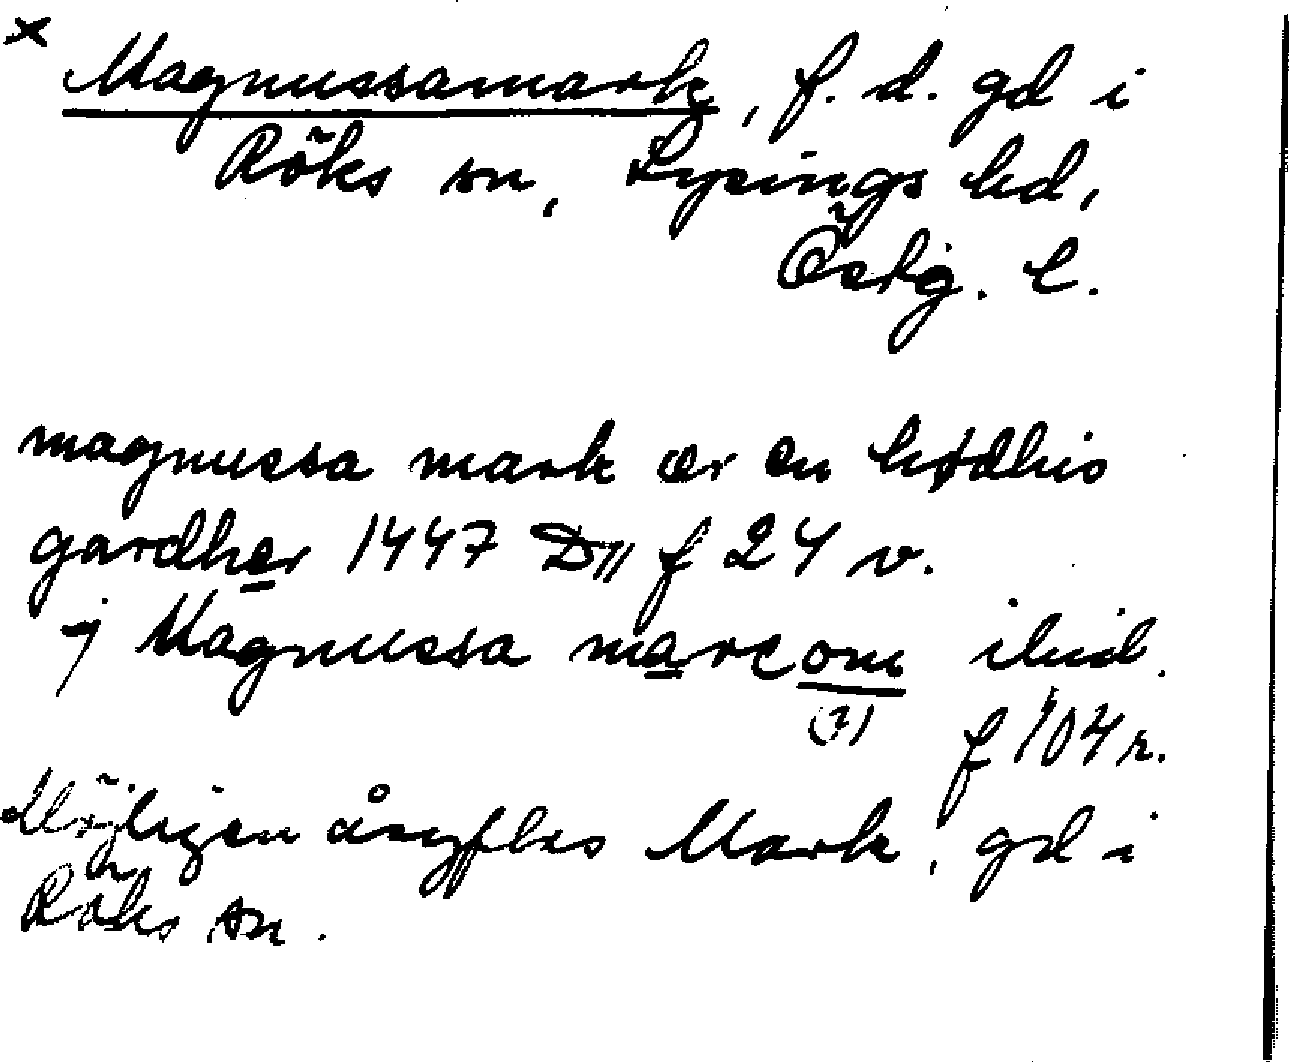 × Magnussamark, f. d. gd i
Röks sn, Lysings hd,
Östg. l.
magnussa mark ær en hødhis
gardher 1447 D11 f 24 v.
j Magnussa marcom ibid.
(?) f 104 r.
Möjligen åsyftas Mark, gd i
Röks sn.